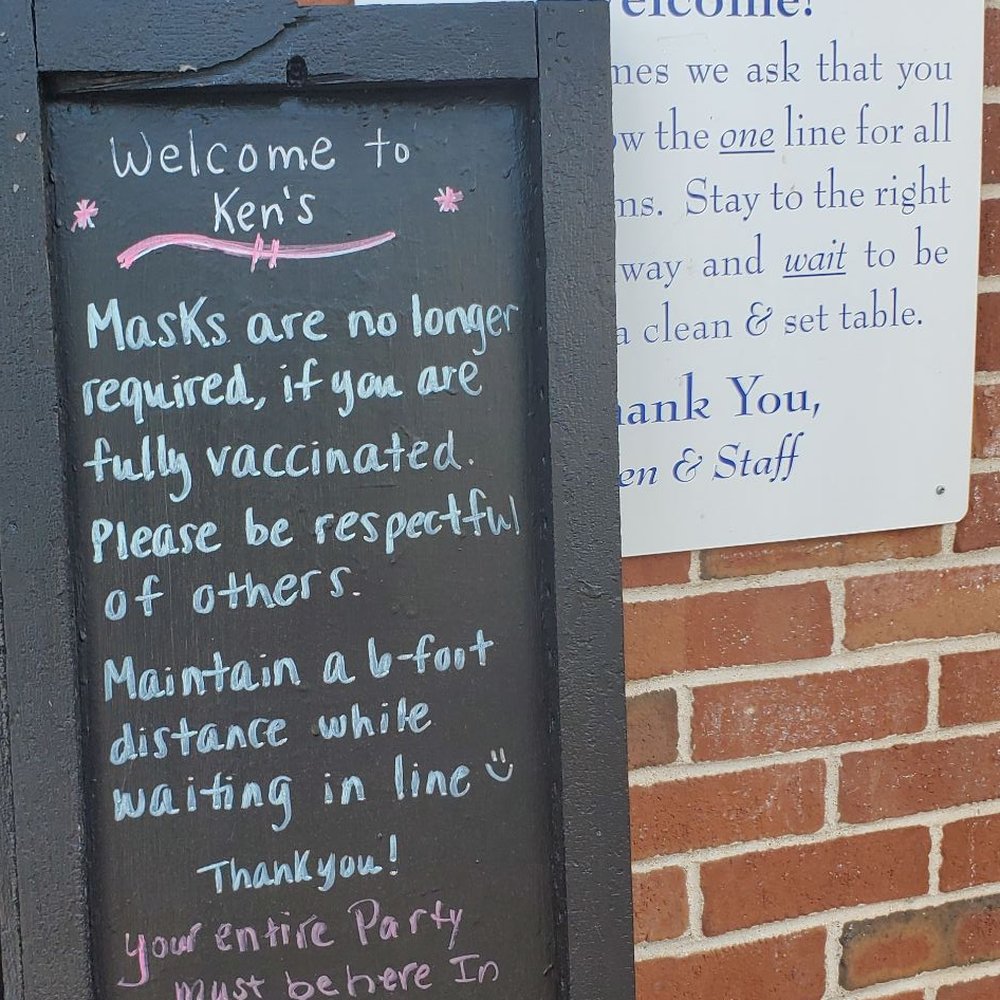 Welcome to
Ken's
Masks are no longer
required, if you are
fully vaccinated.
Please be respectful
of others.
Maintain a 6-foot
distance while
waiting in line
Thank you!
your entire Party
must be here In
elcome!
mes we ask that you
ow the one line for all
ms. Stay to the right
way and wait to be
a clean & set table.
hank You,
en & Staff